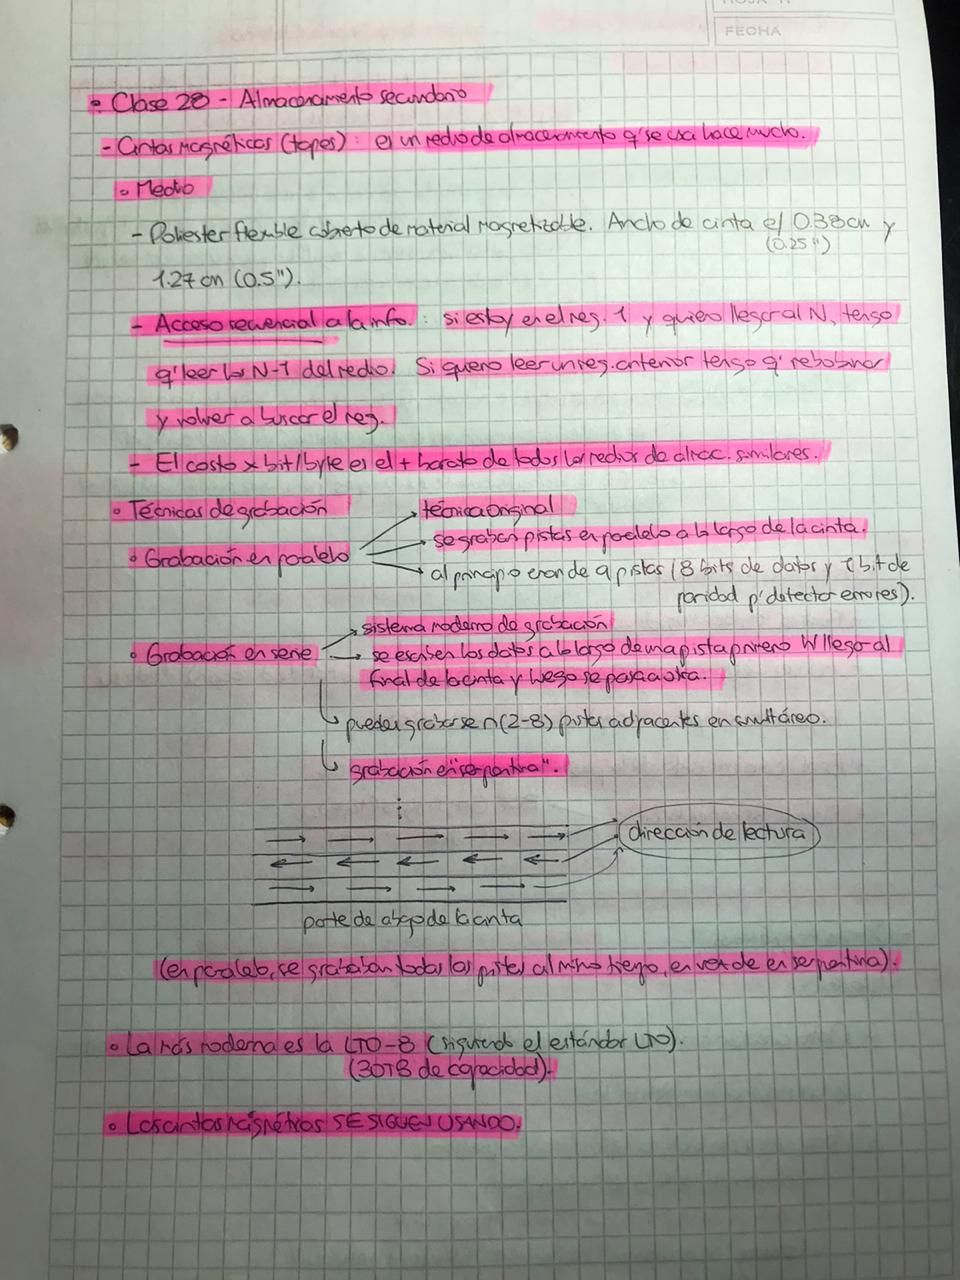 HOJA Nº
FECHA
• Clase 28 - Almacenamiento secundario
- Cintas magnéticas (tapes): es un medio de almacenamiento q' se usa hace mucho.
• Medio
- Poliester flexible cubierto de material magnetizable. Ancho de cinta e/ 0.38cm y
(0.25")
1.27 cm (0.5").
- Acceso secuencial a la info.: si estoy en el reg. 1 y quiero llegar al N, tengo
q' leer los N-1 del medio. Si quiero leer un reg. anterior tengo q' rebobinar
y volver a buscar el reg.
- El costo x bit/byte es el + barato de todos los medios de almac. similares.
• Técnicas de grabación
técnica original
se graban pistas en paralelo a lo largo de la cinta.
• Grabación en paralelo
al principio eran de 9 pistas (8 bits de datos y 1 bit de
paridad p' detectar errores).
sistema moderno de grabación
• Grabación en serie
se escriben los datos a lo largo de una pista primero
llegar al
final de la cinta y luego se pasa a otra.
pueden grabarse n (2-8) pistas adyacentes en simultáneo.
grabación en "serpentina".
dirección de lectura
parte de abajo de la cinta
(en paralelo, se grababan todas las pistas al mismo tiempo, en vez de en serpentina).
• La más moderna es la LTO-8 (siguiendo el estándar LTO).
(30TB de capacidad).
• Las cintas magnéticas SE SIGUEN USANDO.